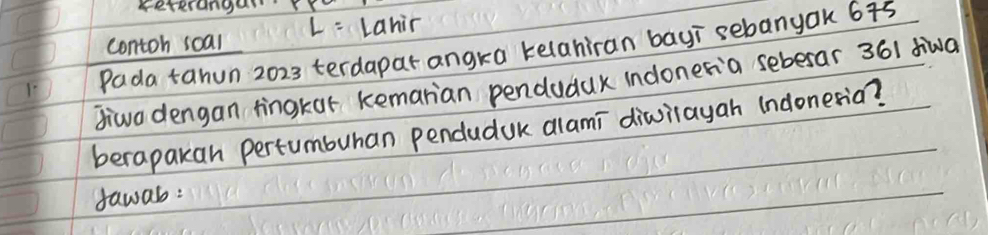 Keterangan:
L = Lahir
contoh soal
1. Pada tahun 2023 terdapat angka kelahiran bayi sebanyak 675
Jiwa dengan tingkat kemarian penduduk indonesia sebesar 361 jiwa
berapakah pertumbuhan penduduk alami diwilayah indonesia?
Jawab: